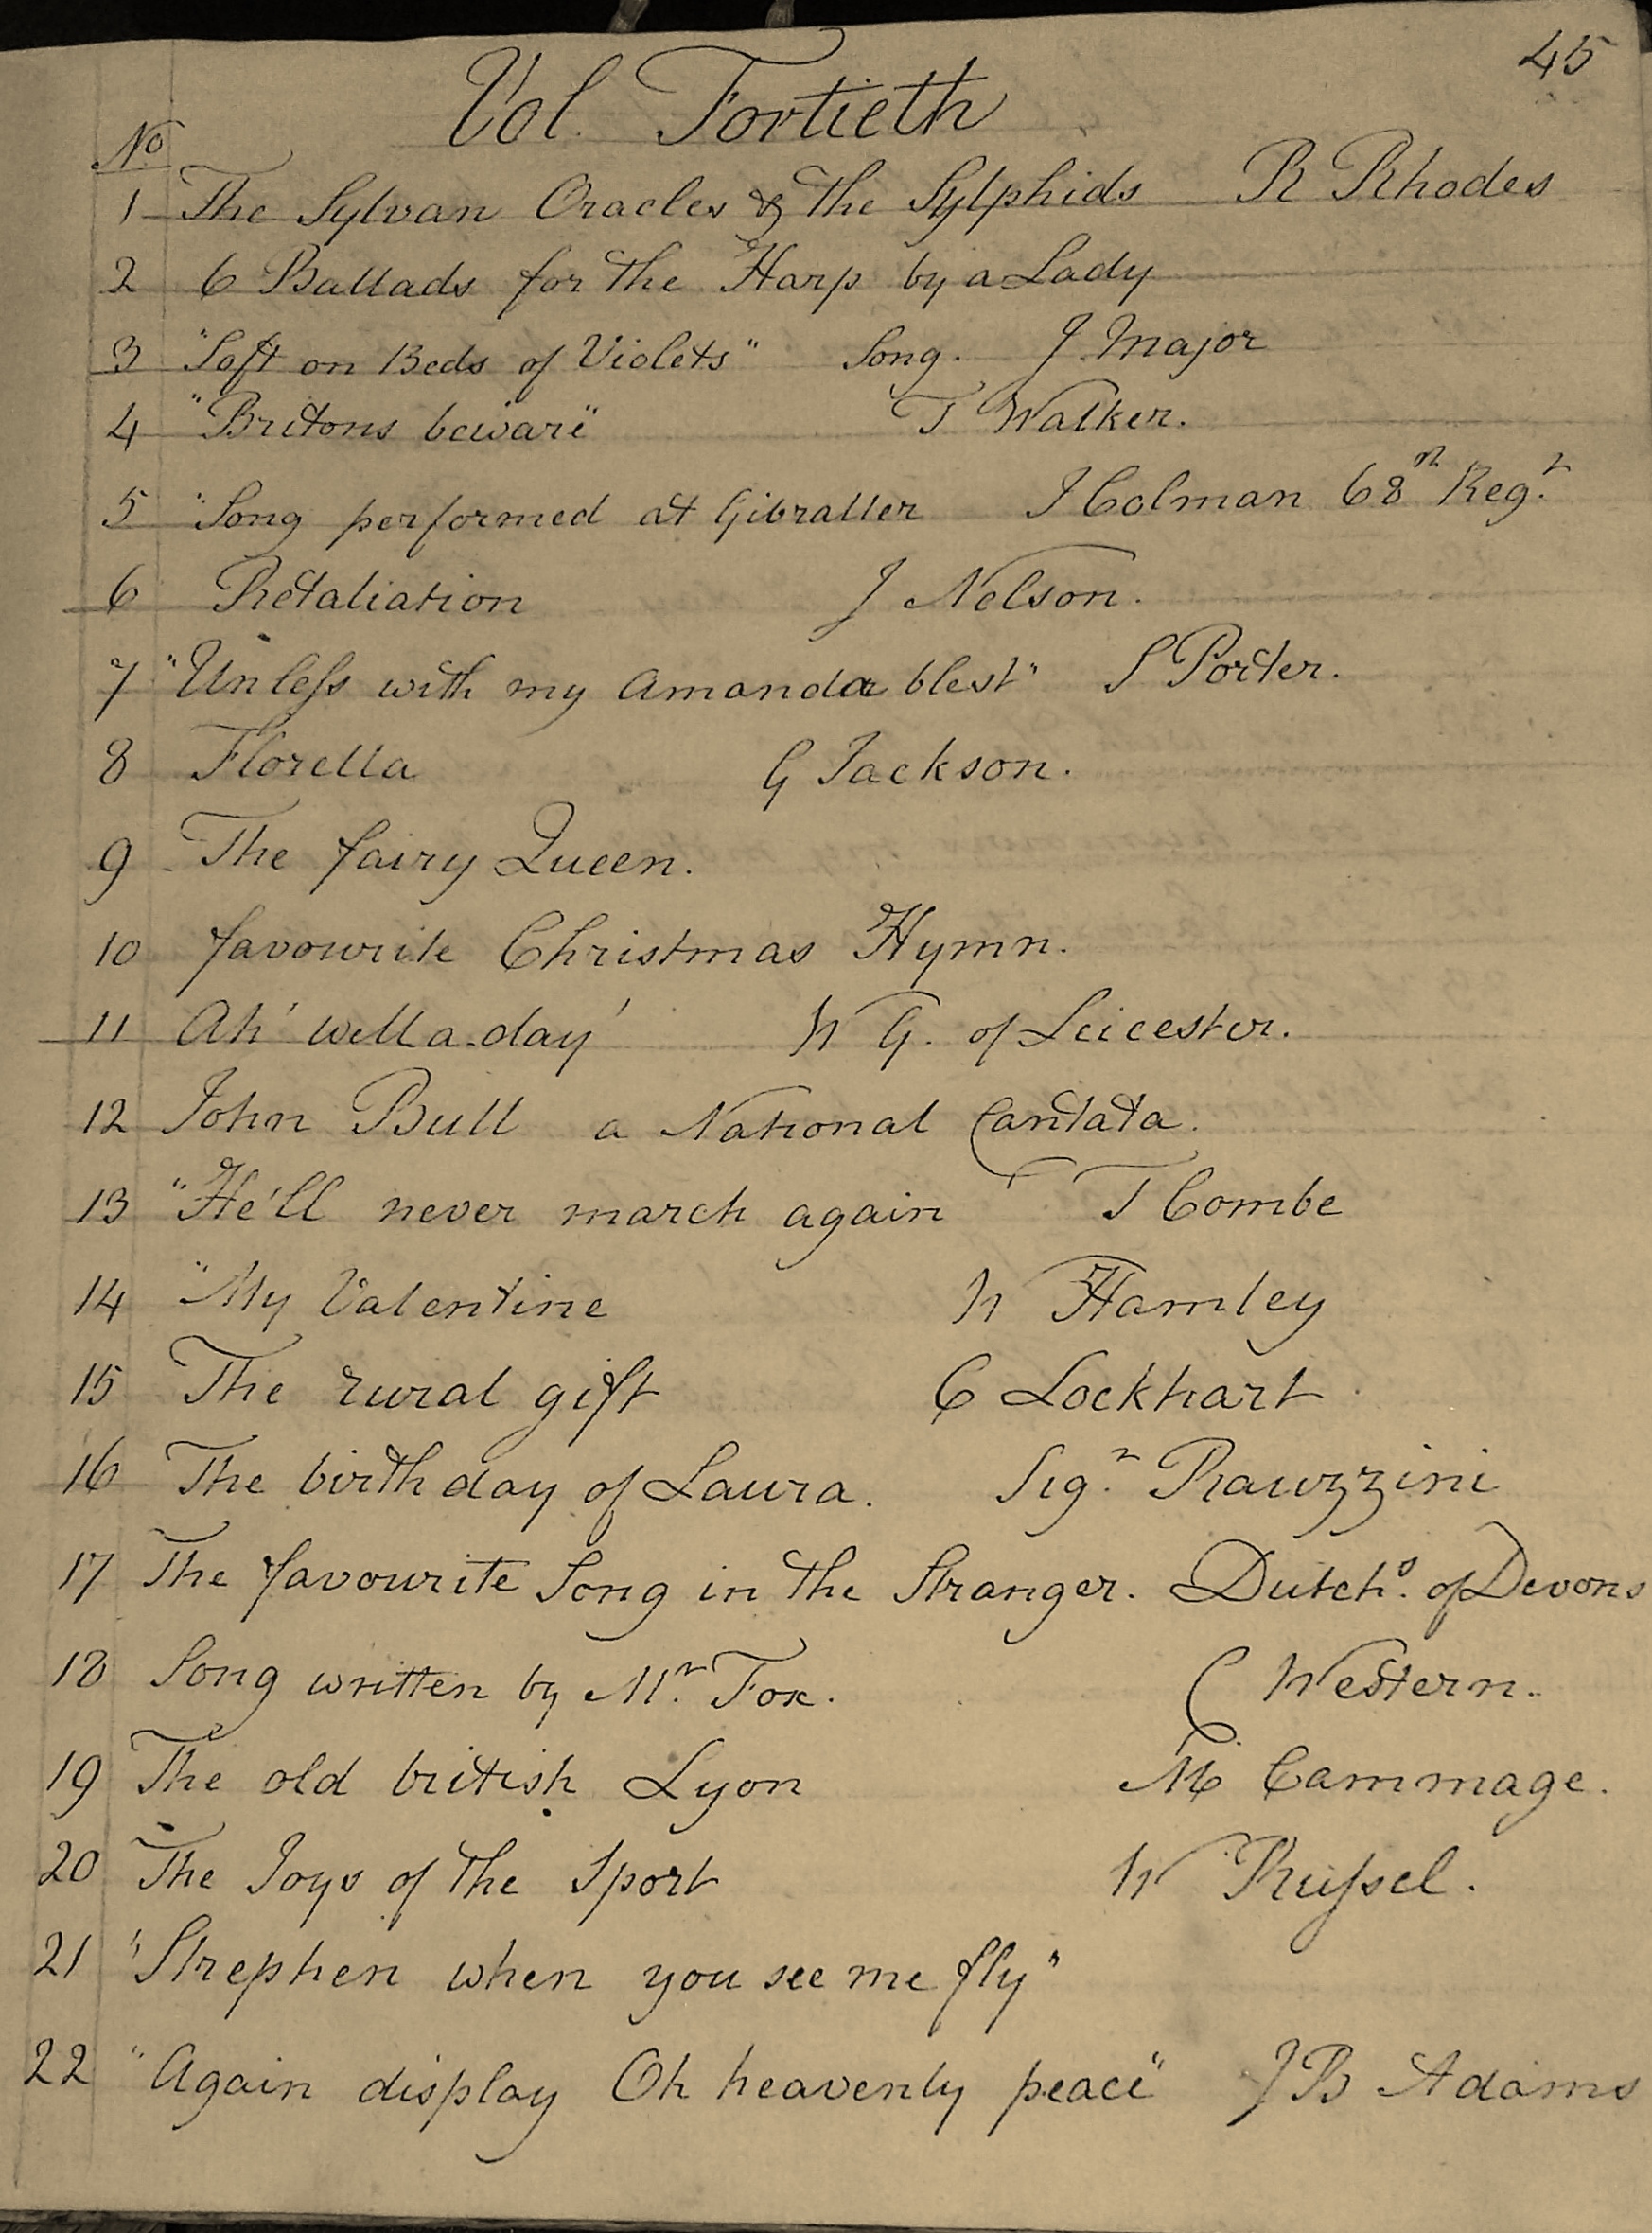 45
Vol. Fortieth
No
1 The Sylvan Oracles & the Sylphids R Rhodes
2 6 Ballads for the Harp by a Lady
3 "Soft on Beds of Violets" Song. J. Major
4 "Britons beware" T Walker.
5 "Song performed at Gibralter J Colman 68th Regt.
6 Retaliation J Nelson.
7 "Unleſs with my Amanda blest" S Porter.
8 Florella G Jackson.
9 The fairy Queen.
10 favourite Christmas Hymn.
11 Ah' well a-day' W G. of Leicester.
12 John Bull a National Cantata.
13 "He'll never march again T Combe
14 "My Valentine W Hamley
15 The rural gift C Lockhart
16 The birth day of Laura. Sigr. Rauzzini
17 The favourite Song in the Stranger. Dutchs. of Devons
18 Song written by Mr. Fox. C Western.
19 The old british Lyon Cammage.
20 The Joys of the Sport W Ruſsel.
21 "Strephen when you see me fly"
22 "Again display Oh heavenly peace" J B Adams